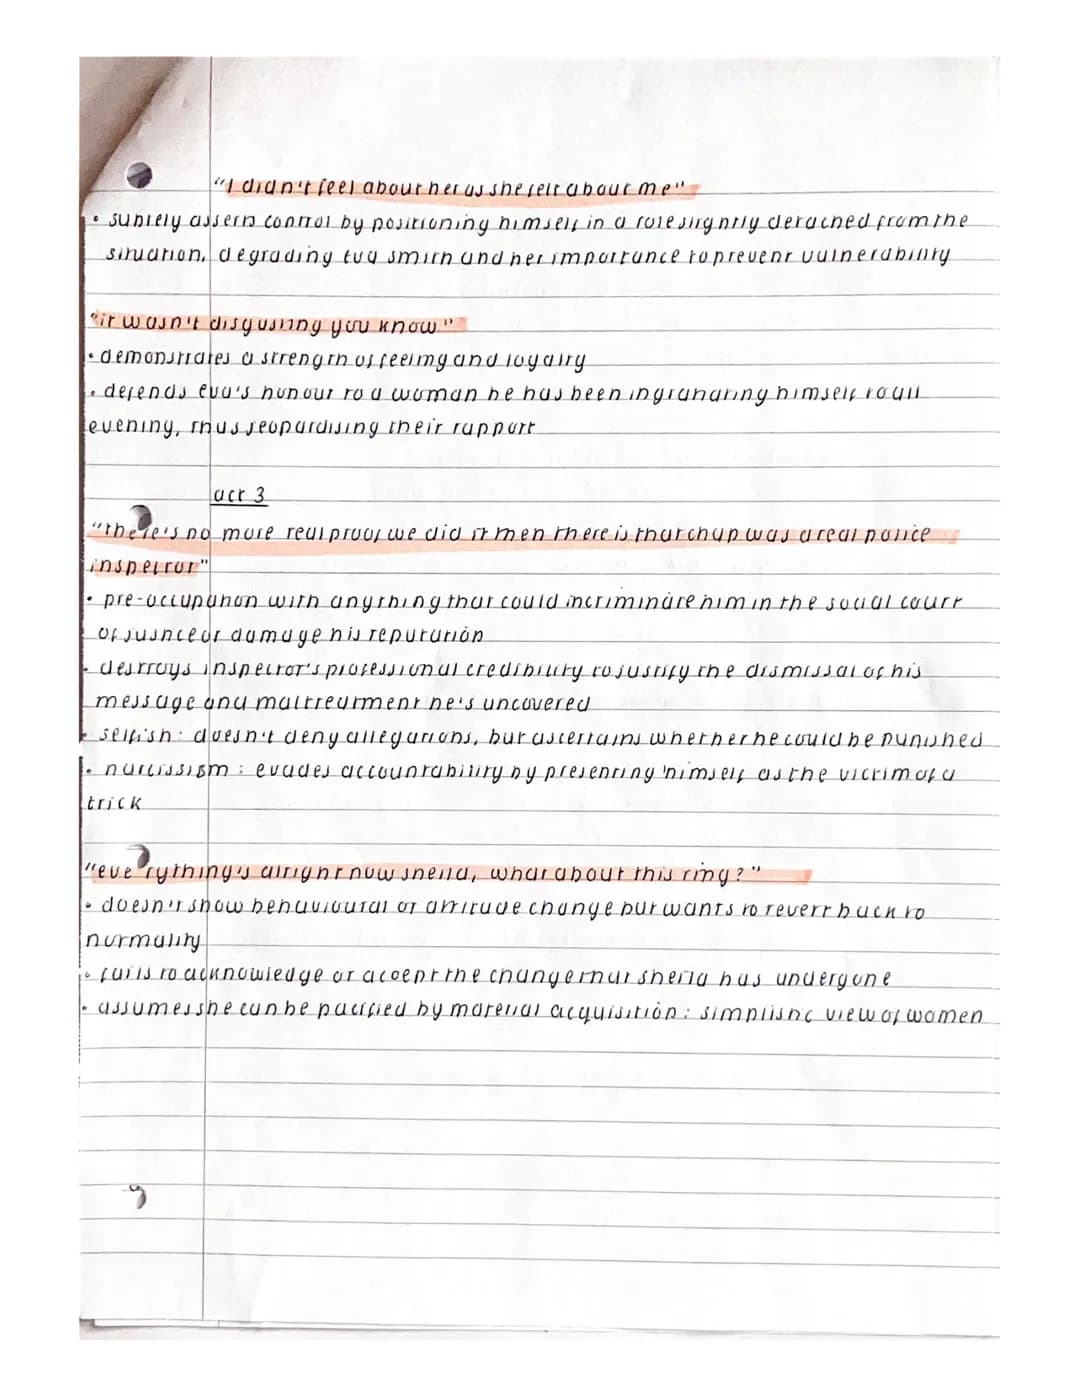 "I didn't feel about her as she felt about me"
• subtely asserts control by positioning himself in a role slightly detached from the
situation, degrading eva smith and her importance to prevent vulnerability
"it wasn't disgusting you know"
• demonstrates a strength of feeling and loyalty
• defends eva's honour to a woman he has been ingratiating himself to all
evening, thus jeopardising their rapport
act 3
"there's no more real proof we did it then there is that chap was a real police
inspector"
• pre-occupation with anything that could incriminate him in the social court
of justice or damage his reputation
• destroys inspector's professional credibility to justify the dismissal of his
message and maltreatment he's uncovered
• selfish: doesn't deny allegations, but ascertains whether he could be punished
• narcissism: evades accountability by presenting himself as the victim of a
trick
"everything's alright now sheila, what about this ring?"
• doesn't show behavioural or attitude change but wants to revert back to
normality
• fails to acknowledge or accept the change that sheila has undergone
• assumes she can be pacified by material acquisition: simplistic view of women